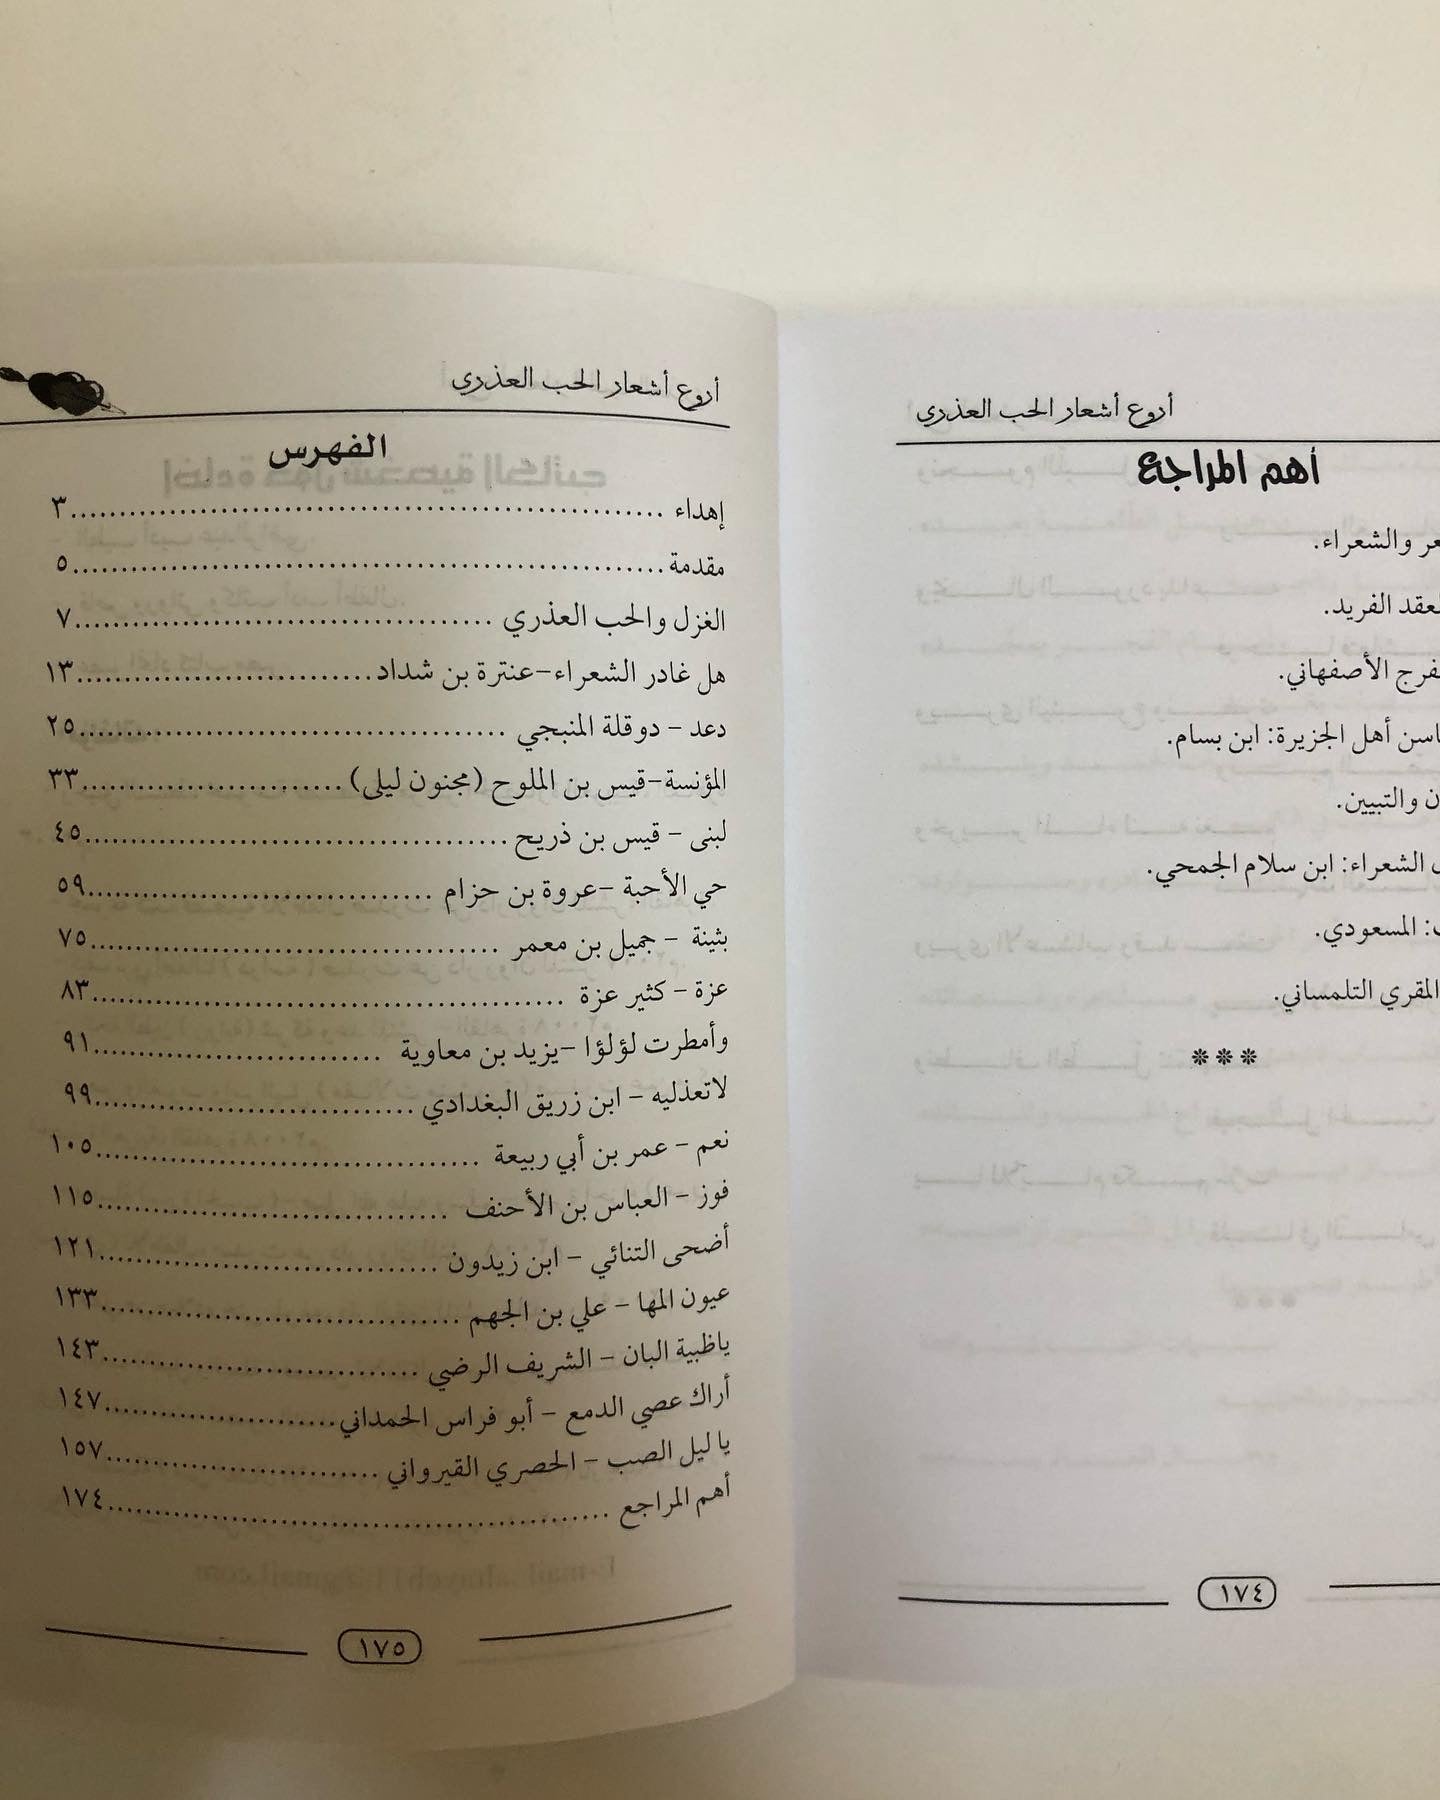 أروع أشعار الحب العذري
أهم المراجع
والشعراء.
العقد الفريد.
الأصفهاني.
أهل الجزيرة: ابن بسام.
والتبيين.
الشعراء: ابن سلام الجمحي.
المسعودي.
المقري التلمساني.
***
١٧٤
أروع أشعار الحب العذري
الفهرس
إهداء ........ ٣
مقدمة ........ ٥
الغزل والحب العذري ........ ٧
هل غادر الشعراء-عنترة بن شداد ........ ١٣
دعد - دوقلة المنبجي ........ ٢٥
المؤنسة-قيس بن الملوح (مجنون ليلى) ........ ٣٣
لبنى - قيس بن ذريح ........ ٤٥
حي الأحبة -عروة بن حزام ........ ٥٩
بثينة - جميل بن معمر ........ ٧٥
عزة - كثير عزة ........ ٨٣
وأمطرت لؤلؤا -يزيد بن معاوية ........ ٩١
لاتعذليه - ابن زريق البغدادي ........ ٩٩
نعم - عمر بن أبي ربيعة ........ ١٠٥
فوز - العباس بن الأحنف ........ ١١٥
أضحى التنائي - ابن زيدون ........ ١٢١
عيون المها - علي بن الجهم ........ ١٣٣
ياظبية البان - الشريف الرضي ........ ١٤٣
أراك عصي الدمع - أبو فراس الحمداني ........ ١٤٧
يا ليل الصب - الحصري القيرواني ........ ١٥٧
أهم المراجع ........ ١٧٤
١٧٥